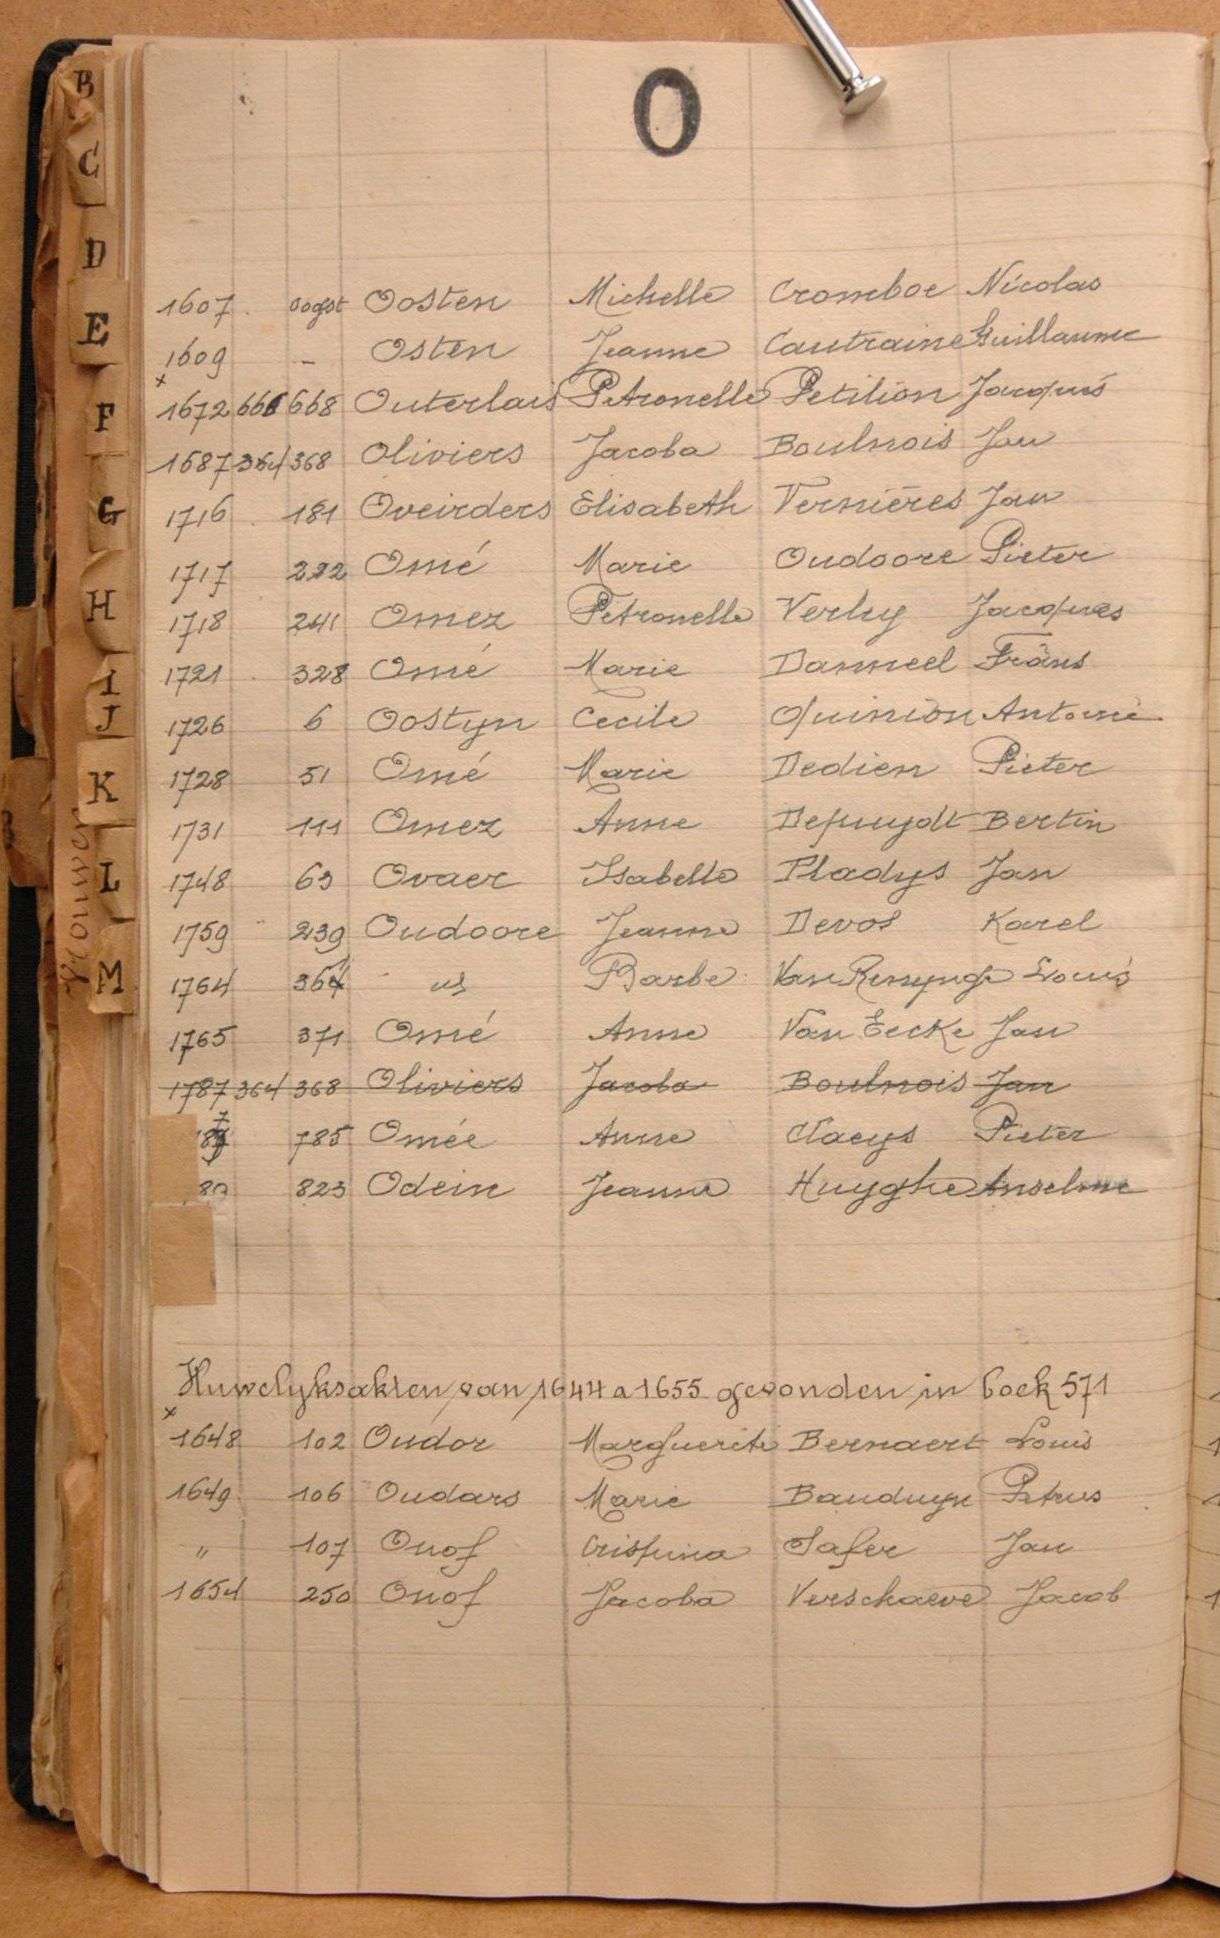 O
B
C
D
E
F
G
H
I
J
K
L
M
Vrouwen
1607 Oogst Oosten Michelle Cromboe Nicolas
1609 - Osten Jeanne Cautraine Guillaume
x
1672 666 668 Outerlais Petronelle Petilion Jacques
1687 364 368 Oliviers Jacoba Boulnois Jan
1716 181 Oveirders Elisabeth Vernières Jan
1717 222 Omé Marie Oudoore Pieter
1718 241 Omez Petronelle Verluy Jacques
1721 328 Omé Marie Danneel Frans
1726 6 Oostyn Cecile Quinion Antoine
1728 51 Omé Marie Dedien Pieter
1731 111 Omez Anne Depuydt Bertin
1748 63 Ovaer Isabelle Pladys Jan
1759 239 Oudoore Jeanne Devos Karel
1764 364 id Barbe Van Renynge Louis
1765 371 Omé Anne Van Eecke Jan
1787 364 368 Oliviers Jacoba Boulnois Jan
785 Omée Anne Claeys Pieter
823 Odein Jeanne Huyghe Anselme
Huwelyksakten van 1644 a 1655 gevonden in boek 571
x
1648 102 Oudor Marguerite Bernaert Louis
1649 106 Oudars Marie Bauduyn Petrus
" 107 Onof Crispina Safer Jan
1654 250 Onof Jacoba Verschaeve Jacob